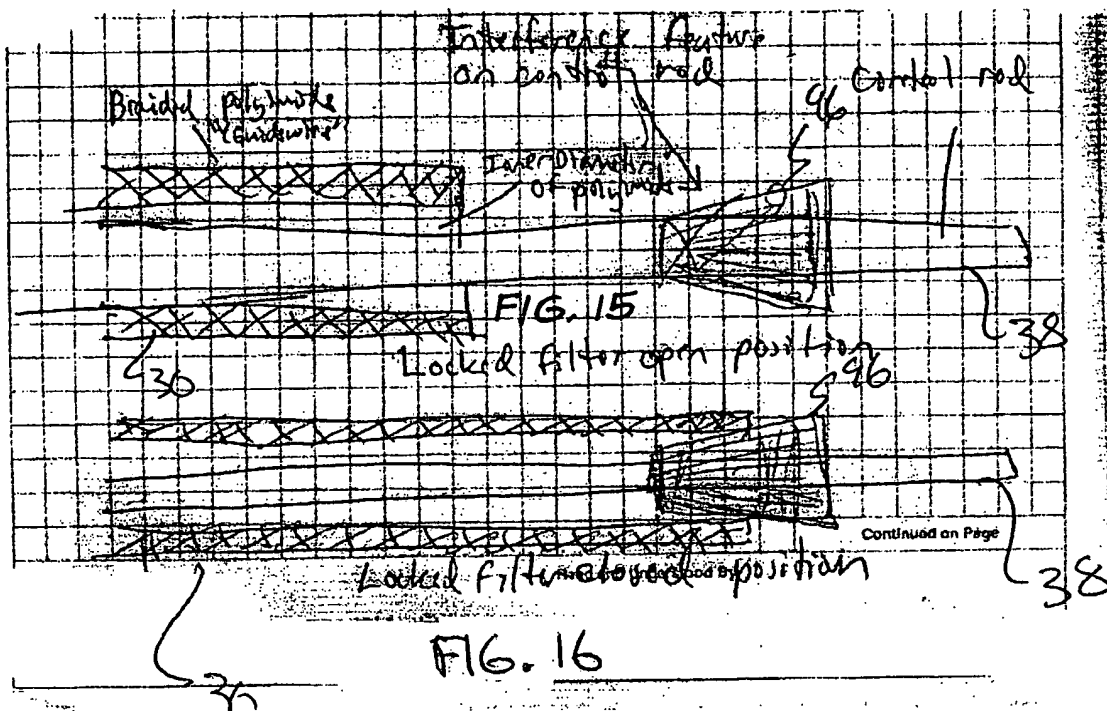 Interference feature
on control rod
Control rod
96
Braided polyimide
"Guidewire"
Inner Diameter
of polyimide
FIG. 15
38
Locked filter open position
30
96
Continued on Page
Locked filter closed position
38
FIG. 16